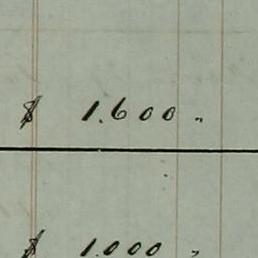 $ 1.600 "
$ 1.000 "